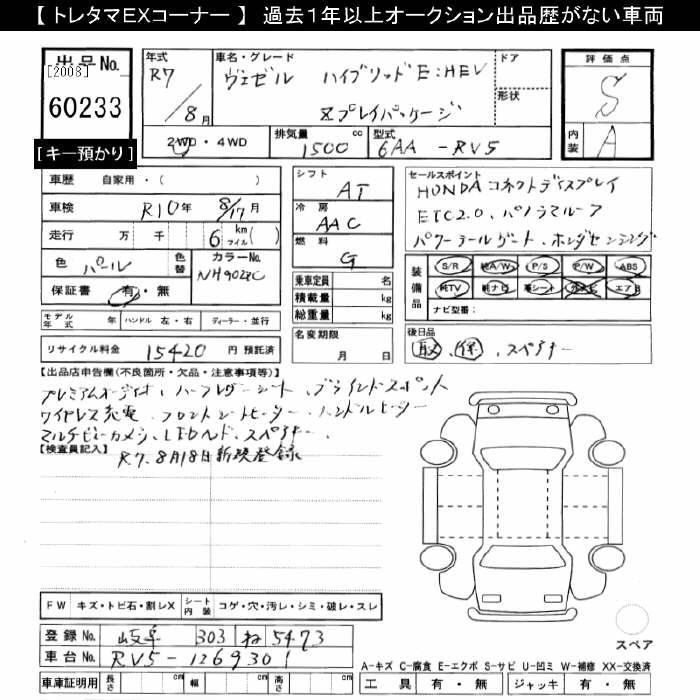 【 トレタマEXコーナー 】 過去1年以上オークション出品歴がない車両
出品No.
[2008]
60233
[キー預かり]
年式 R7/8月
車名・グレード ヴェゼル ハイブリッドE:HEV
Zプレイパッケージ
ドア
形状
2WD・4WD
排気量 1500 cc
型式 6AA-RV5
評価点
S
内装 A
車歴 自家用・( )
車検 R10年 8/17月
走行 万 千 6 km マイル( )
色 パール
色替
カラーNo. NH902XC
保証書 有・無
モデル年式 年 ハンドル 左・右 ディーラー・並行
リサイクル料金 15420 円 預託済
シフト AT
冷房 AAC
燃料 G
乗車定員 名
積載量 kg
総重量 kg
名変期限
月 日
セールスポイント
HONDAコネクトディスプレイ
ETC2.0、パノラマルーフ
パワーテールゲート、ホンダセンシング
装備品
S/R 純A/W P/S P/W ABS
純TV 純ナビ 革シート エアB
ナビ型番:
後日品
取、保、スペアキー
【出品店申告欄(不良箇所・欠品・注意事項等)】
プレミアムオーディオ、ハーフレザーシート、ブラインドスポット
ワイヤレス充電、フロントシートヒーター、ハンドルヒーター
マルチビューカメラ、LEDヘッド、スペアキー、
【検査員記入】
R7、8月18日新規登録
FW キズ・トビ石・割レX シート内装 コゲ・穴・汚レ・シミ・破レ・スレ
登録No. 岐阜 303 ね 5473
車台No. RV5-1269301
車庫証明用 長さ cm 幅 cm 高さ cm
スペア
A-キズ C-腐食 E-エクボ S-サビ U-凹ミ W-補修 XX-交換済
工具 有・無 ジャッキ 有・無